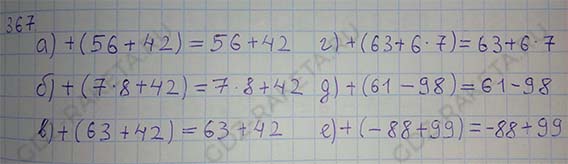 367
а) +(56+42) = 56+42 г) +(63+6·7) = 63+6·7
б) +(7·8+42) = 7·8+42 д) +(61-98) = 61-98
в) +(63+42) = 63+42 е) +(-88+99) = -88+99
GDZ-RAKETA.RU